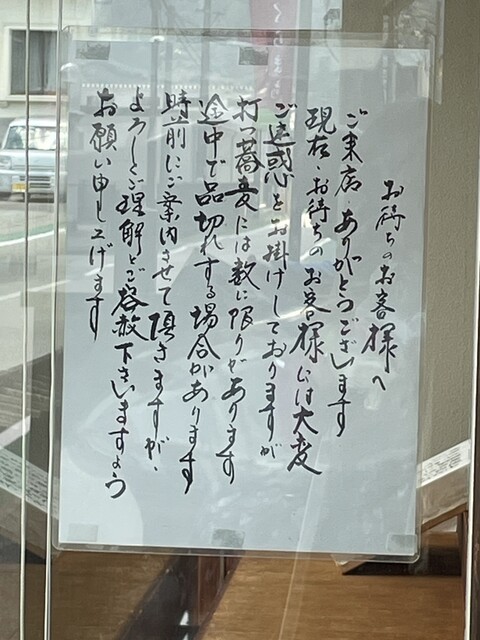 お待ちのお客様へ
ご来店ありがとうございます
現在、お待ちのお客様には大変
ご迷惑をお掛けしておりますが
打つ蕎麦には数に限りがあります
途中で品切れする場合があります
時前にご案内させて頂きますが、
よろしくご理解とご容赦下さいますよう
お願い申し上げます